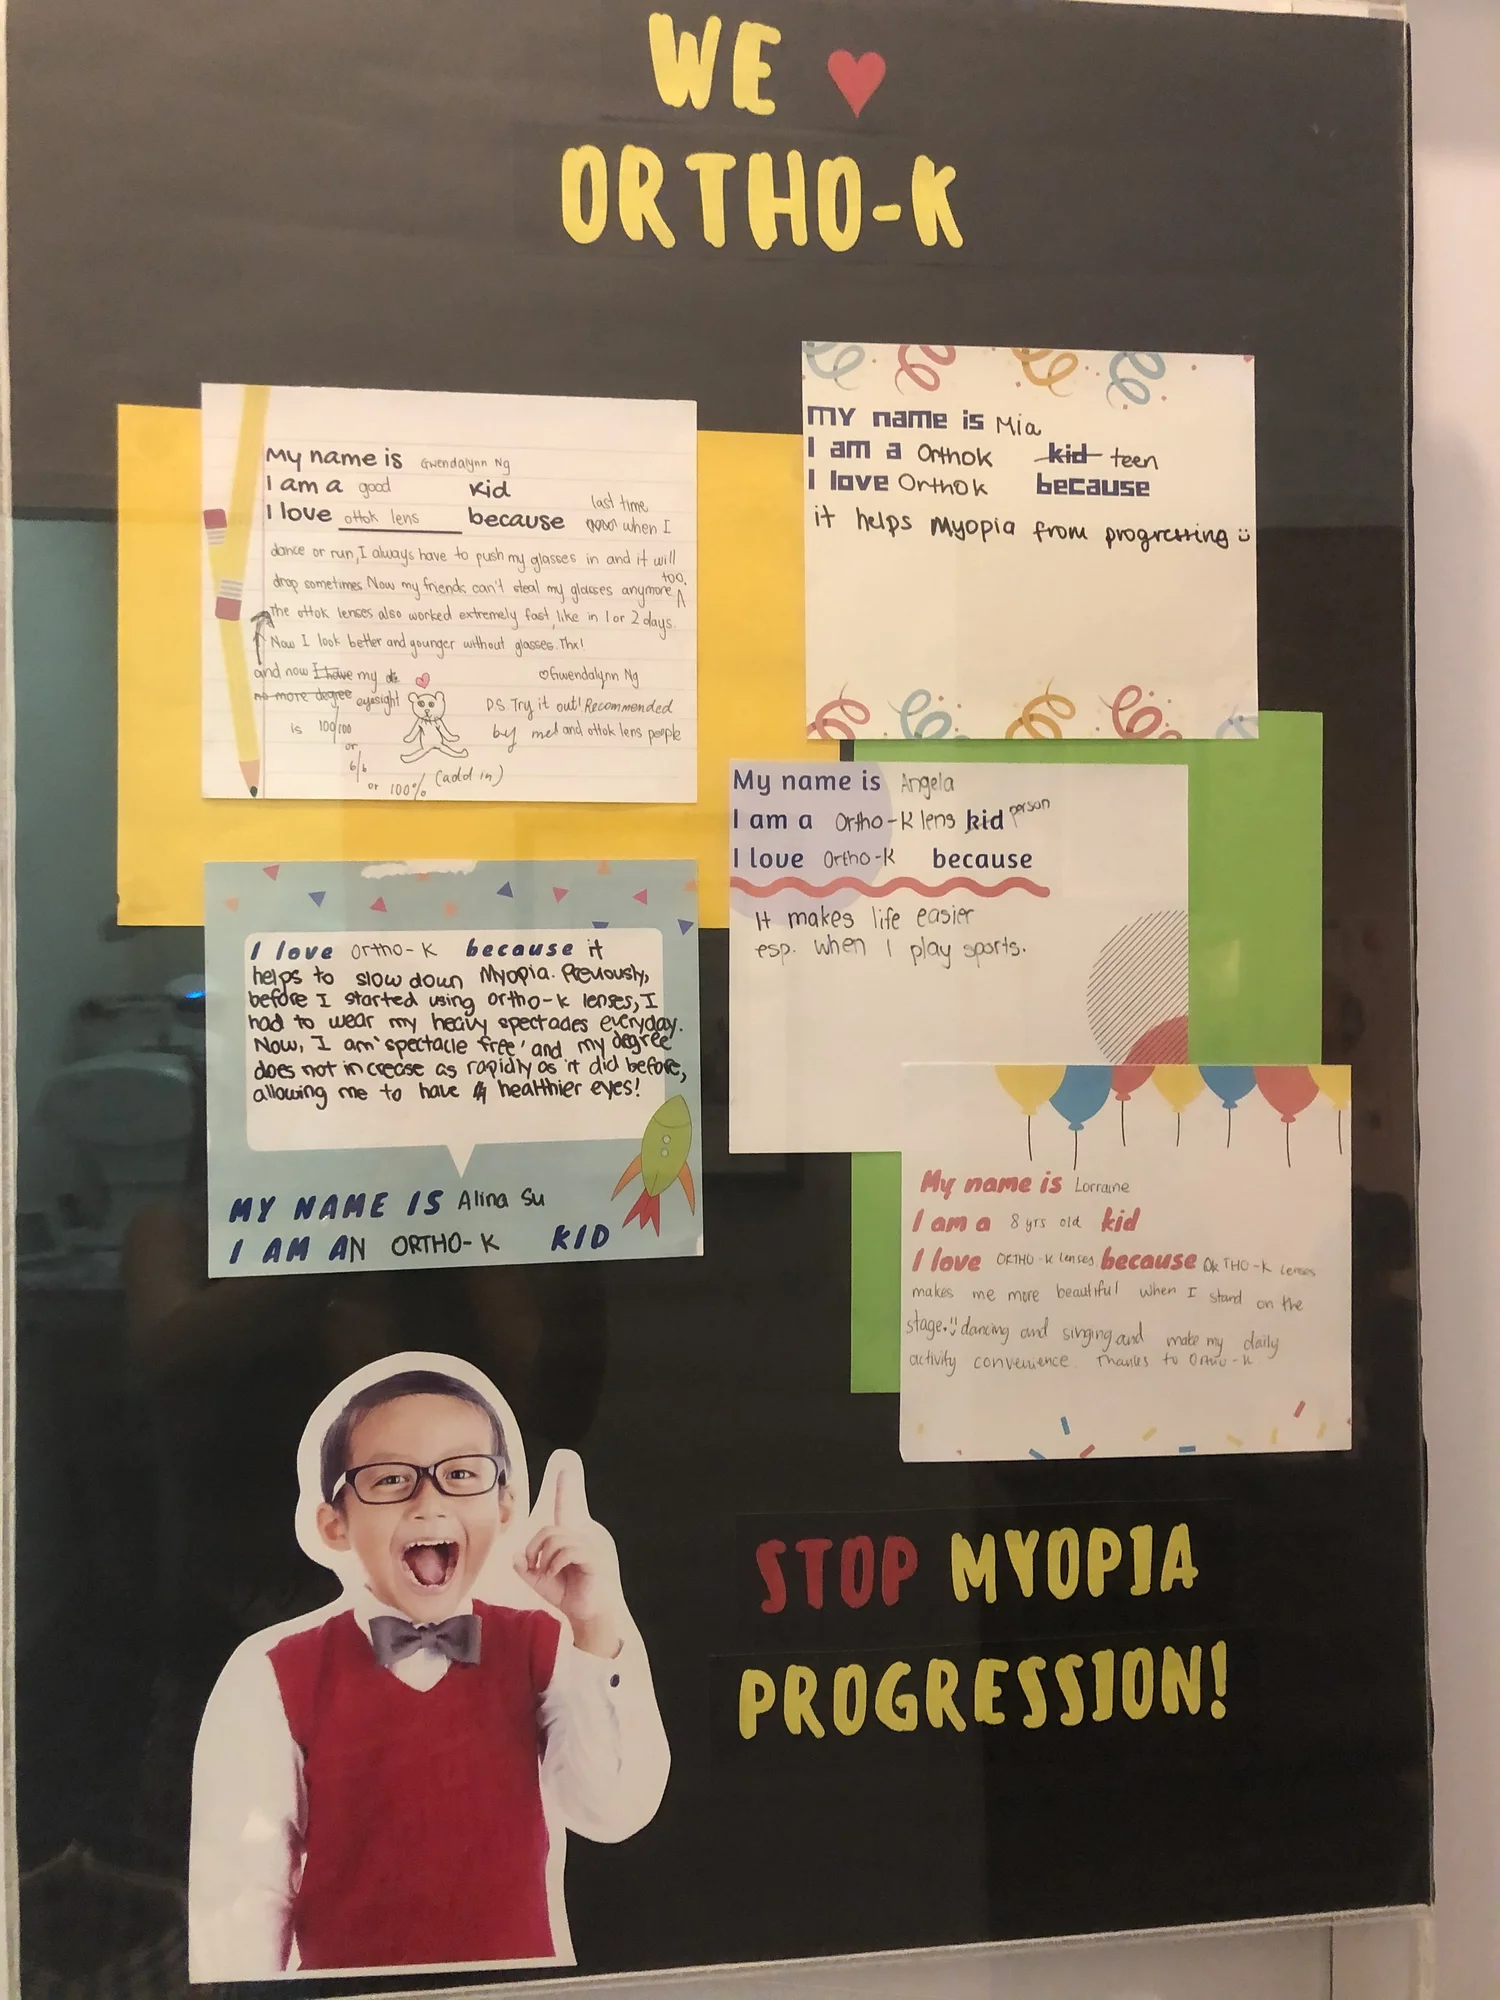 WE ♥
ORTHO-K
My name is Gwendalynn Ng
I am a good kid
I love ottok lens because last time
when I
dance or run, I always have to push my glasses in and it will
drop sometimes. Now my friends can't steal my glasses anymore too.
The ottok lenses also worked extremely fast, like in 1 or 2 days.
Now I look better and younger without glasses. Thx!
and now I have my
no more degree eyesight
is 100/100
or
6/6
or 100% (add in)
♡Gwendalynn Ng
PS Try it out! Recommended
by me! and ottok lens people
MY name is Mia
I am a Orthok kid teen
I love Orthok because
it helps Myopia from progressing
My name is Angela
I am a Ortho-K lens kid person
I love Ortho-K because
It makes life easier
esp. when I play sports.
I love ortho-K because it
helps to slow down Myopia. Previously,
before I started using ortho-k lenses, I
had to wear my heavy spectacles everyday.
Now, I am 'spectacle free' and my degree
does not increase as rapidly as it did before,
allowing me to have healthier eyes!
MY NAME IS Alina Su
I AM AN ORTHO-K KID
My name is Lorraine
I am a 8 yrs old kid
I love ORTHO-K lenses because ORTHO-K lenses
makes me more beautiful when I stand on the
stage. dancing and singing and make my daily
activity convenience. Thanks to Ortho-K
STOP MYOPIA
PROGRESSION!